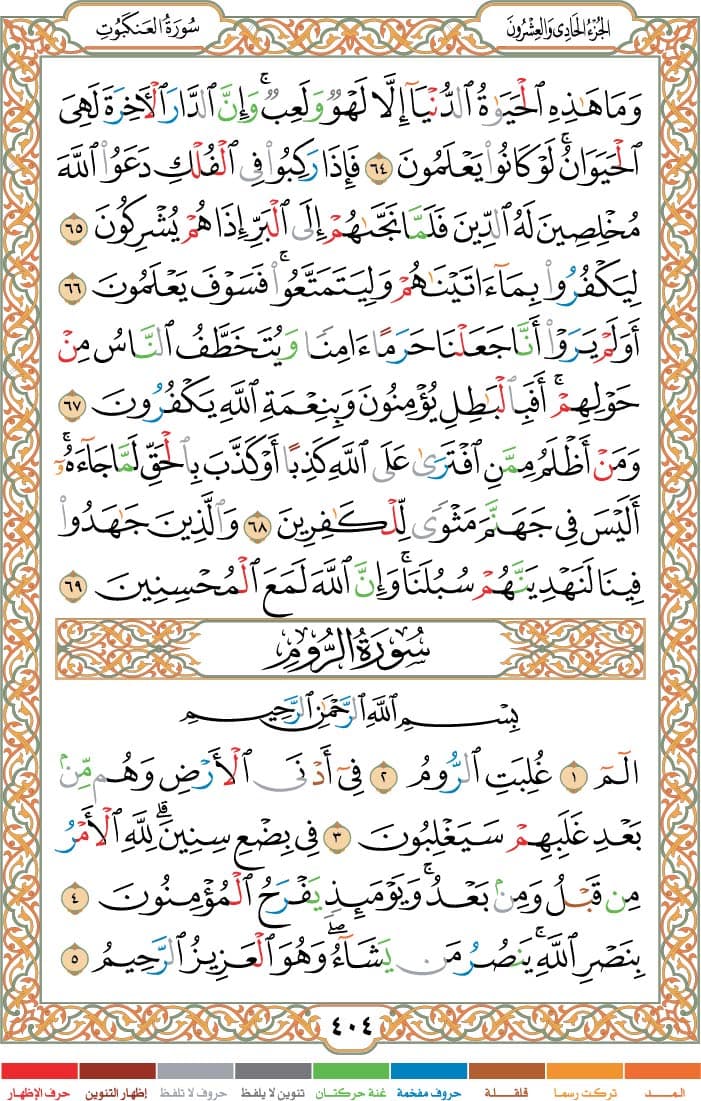 الجزء الحادي والعشرون
سورة العنكبوت
وَمَا هَٰذِهِ الْحَيَوٰةُ الدُّنْيَآ إِلَّا لَهْوٌ وَلَعِبٌ ۚ وَإِنَّ الدَّارَ الْآخِرَةَ لَهِىَ
الْحَيَوَانُ ۚ لَوْ كَانُوا۟ يَعْلَمُونَ ٦٤ فَإِذَا رَكِبُوا۟ فِى الْفُلْكِ دَعَوُا۟ اللَّهَ
مُخْلِصِينَ لَهُ الدِّينَ فَلَمَّا نَجَّىٰهُمْ إِلَى الْبَرِّ إِذَا هُمْ يُشْرِكُونَ ٦٥
لِيَكْفُرُوا۟ بِمَآ ءَاتَيْنَٰهُمْ وَلِيَتَمَتَّعُوا۟ ۚ فَسَوْفَ يَعْلَمُونَ ٦٦
أَوَلَمْ يَرَوْا۟ أَنَّا جَعَلْنَا حَرَمًا ءَامِنًا وَيُتَخَطَّفُ النَّاسُ مِنْ
حَوْلِهِمْ ۚ أَفَبِالْبَٰطِلِ يُؤْمِنُونَ وَبِنِعْمَةِ اللَّهِ يَكْفُرُونَ ٦٧
وَمَنْ أَظْلَمُ مِمَّنِ افْتَرَىٰ عَلَى اللَّهِ كَذِبًا أَوْ كَذَّبَ بِالْحَقِّ لَمَّا جَآءَهُۥٓ ۚ
أَلَيْسَ فِى جَهَنَّمَ مَثْوًى لِّلْكَٰفِرِينَ ٦٨ وَالَّذِينَ جَٰهَدُوا۟
فِينَا لَنَهْدِيَنَّهُمْ سُبُلَنَا ۚ وَإِنَّ اللَّهَ لَمَعَ الْمُحْسِنِينَ ٦٩
سُورَةُ الرُّومِ
بِسْمِ اللَّهِ الرَّحْمَٰنِ الرَّحِيمِ
الٓمٓ ١ غُلِبَتِ الرُّومُ ٢ فِىٓ أَدْنَى الْأَرْضِ وَهُم مِّنۢ
بَعْدِ غَلَبِهِمْ سَيَغْلِبُونَ ٣ فِى بِضْعِ سِنِينَ ۗ لِلَّهِ الْأَمْرُ
مِن قَبْلُ وَمِنۢ بَعْدُ ۚ وَيَوْمَئِذٍ يَفْرَحُ الْمُؤْمِنُونَ ٤
بِنَصْرِ اللَّهِ ۚ يَنصُرُ مَن يَشَآءُ ۖ وَهُوَ الْعَزِيزُ الرَّحِيمُ ٥
٤٠٤
المـــد
تركت رسما
قلقـلة
حروف مفخمة
غنة حركتان
تنوين لا يلفظ
حروف لا تلفظ
إظهار التنوين
حرف الإظهار